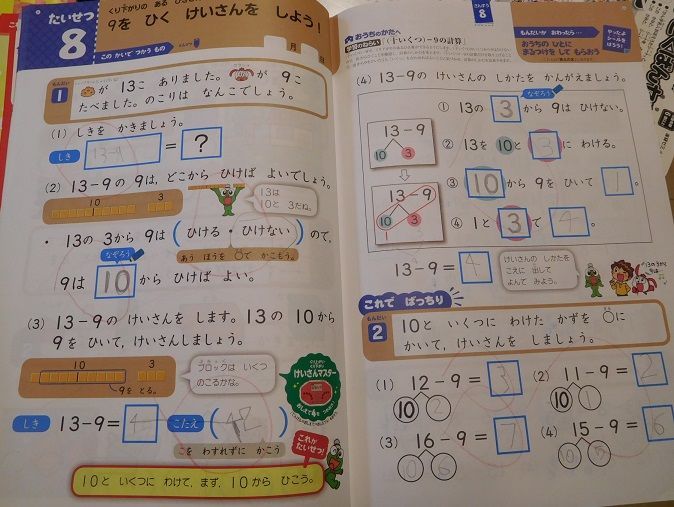 たいせつ
8
くり下がりの ある ひ
9を ひく けいさんを しよう！
この かいで つかう もの
えんぴつ
月
日
もんだい
1
が 13こ ありました。 が 9こ
たべました。のこりは なんこでしょう。
(1) しきを かきましょう。
しき 13-9 = ?
(2) 13-9の 9は、どこから ひけば よいでしょう。
10 3
13は
10と 3だね。
・ 13の 3から 9は(ひける・ひけない)ので、
あう ほうを ○で かこもう。
なぞろう
9は 10 から ひけば よい。
(3) 13-9の けいさんを します。13の 10から
9を ひいて、けいさんしましょう。
10 3
9を とる。
ブロックは いくつ
のこるかな。
けいさんマスター
しき 13-9= 4 こたえ ( 4こ )
こを わすれずに かこう
これが
たいせつ！
10と いくつに わけて、まず、10から ひこう。
さんすう
8
おうちのかたへ
学習のねらい (十いくつ)-9の計算
もんだいが おわったら…
おうちの ひとに
まるつけを して もらおう
やったよ
シールを
はろう！
(4) 13-9の けいさんの しかたを かんがえましょう。
なぞろう
① 13の 3 から 9は ひけない。
13-9
10 3
② 13を 10と 3 に わける。
③ 10 から 9を ひいて 1 。
13-9
10 3
1
④ 1と 3 で 4 。
13-9= 4
けいさんの しかたを
こえに 出して
よんで みよう。
13の3から
9は
これで ばっちり
もんだい
2
10と いくつに わけた かずを ○に
かいて、けいさんを しましょう。
(1) 12-9= 3
10 2
(2) 11-9= 2
10 1
(3) 16-9= 7
10 6
(4) 15-9= 6
10 5